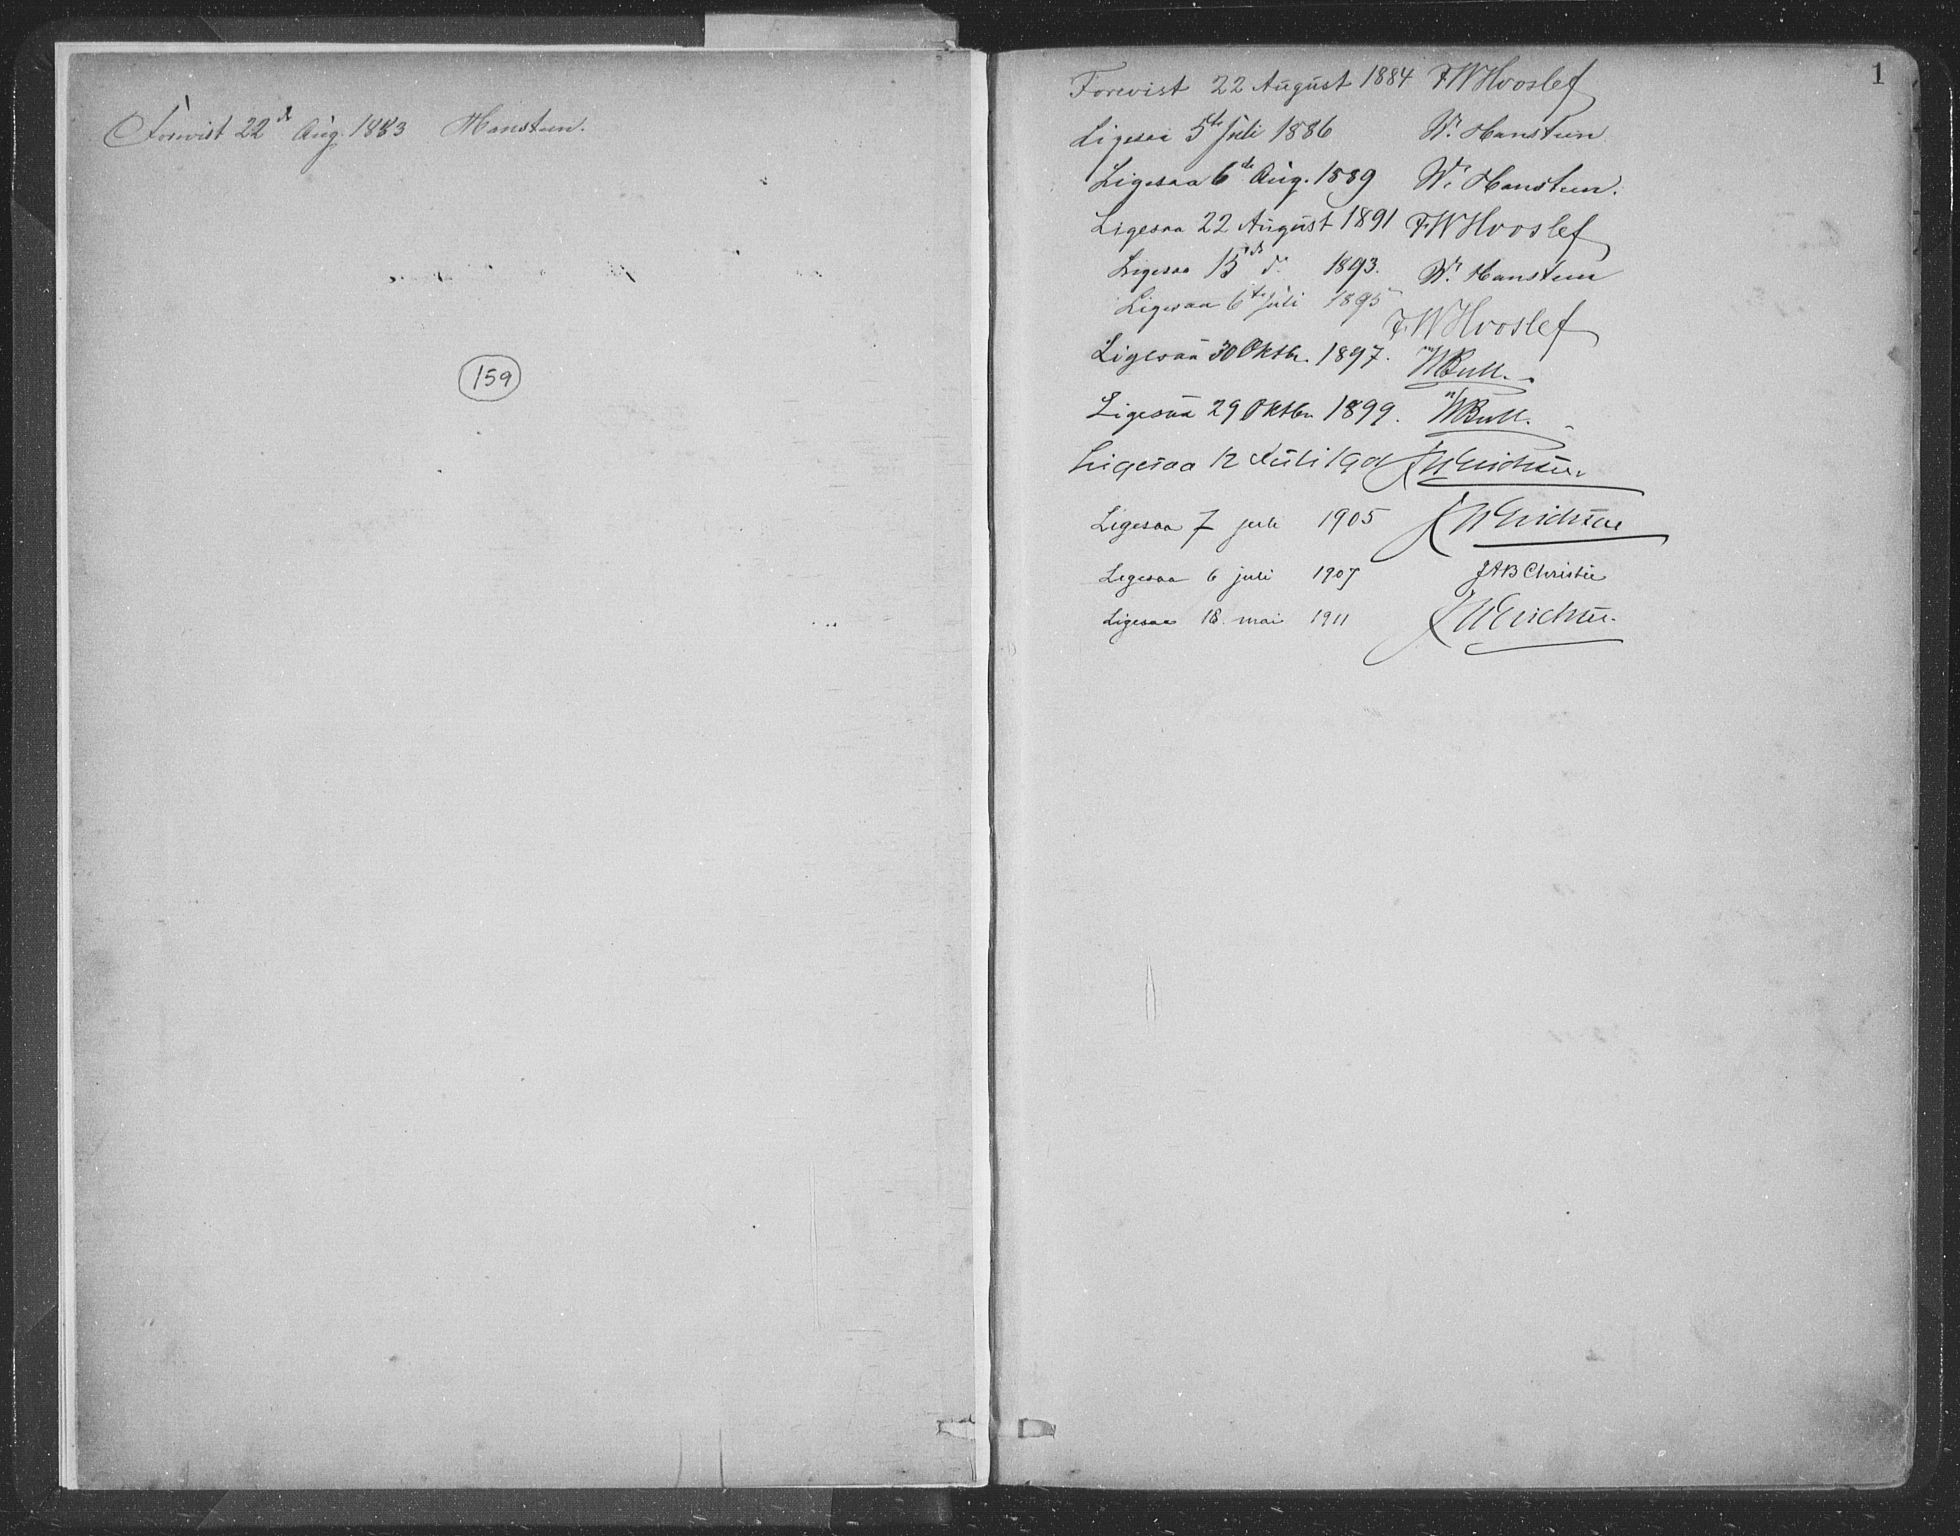 Forevist 22de Aug. 1883 Hansteen.
159
1
Forevist 22 August 1884 FWHvoslef
Ligesaa 5te Juli 1886 W. Hansteen
Ligesaa 6de Aug. 1889 W. Hansteen.
Ligesaa 22 August 1891 FWHvoslef
Ligesaa 15de d. 1893. W. Hansteen
Ligesaa 6te Juli 1895 F.W Hvoslef
Ligesaa 30 Oktbr. 1897. WBull.
Ligesaa 29 Oktbr 1899. WBull.
Ligesaa 12 Juli 1901
Ligesaa 7 juli 1905
Ligesaa 6 juli 1907 JAB Christie
Ligesaa 18. mai 1911